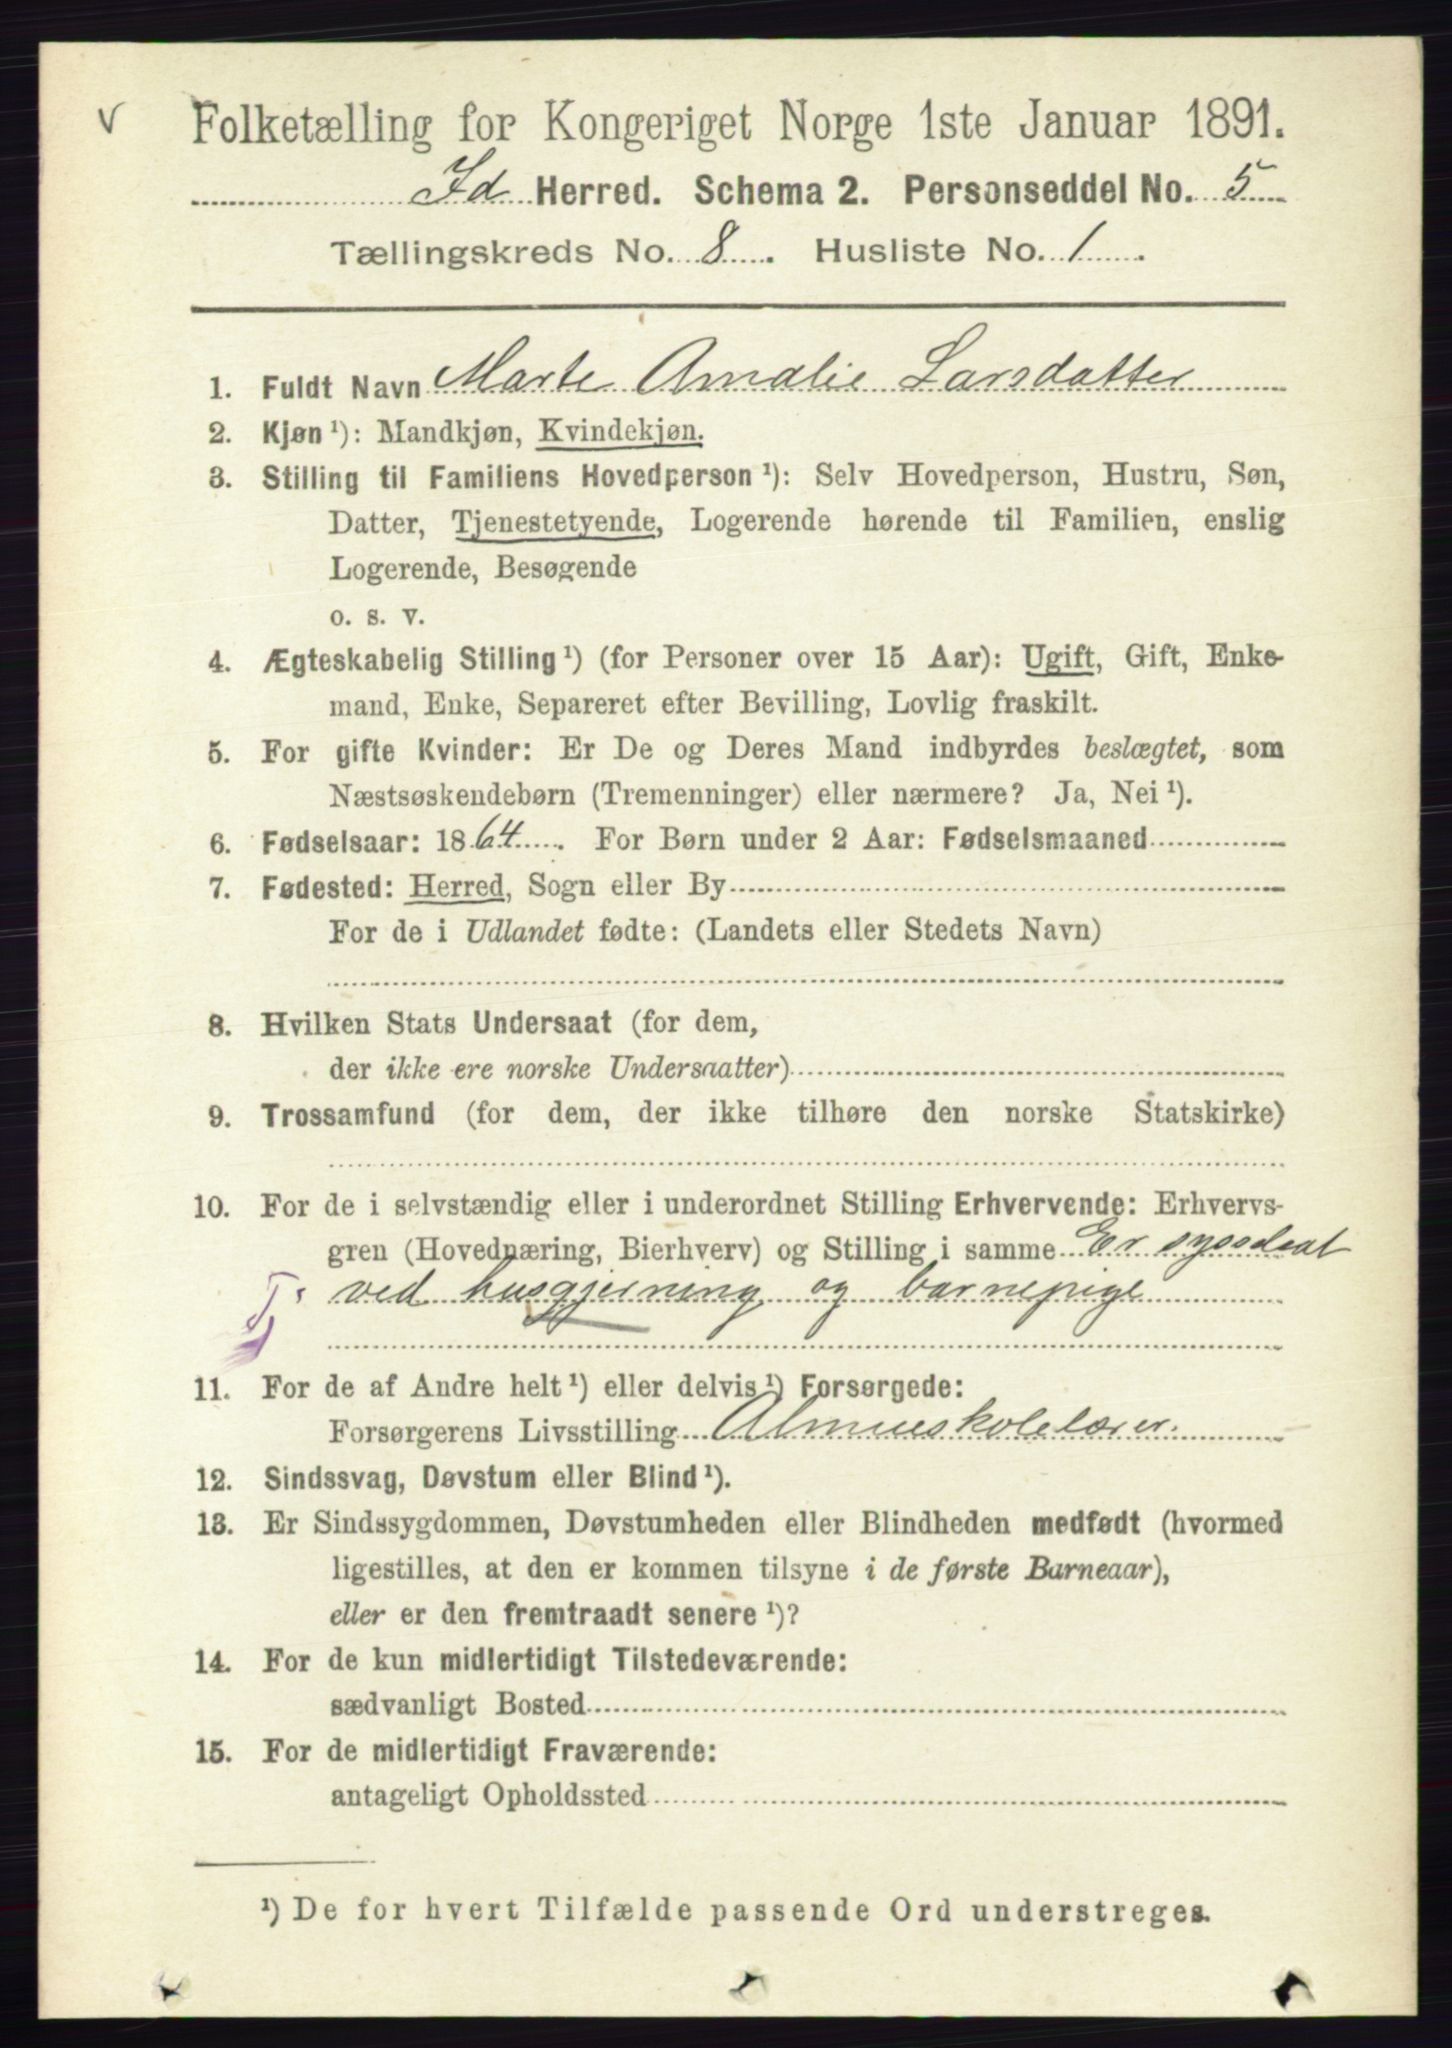 v
Folketælling for Kongeriget Norge 1ste Januar 1891.
Id Herred. Schema 2. Personseddel No. 5
Tællingskreds No. 8. Husliste No. 1.
1. Fuldt Navn Marte Amalie Larsdatter
2. Kjøn ¹): Mandkjøn, Kvindekjøn.
3. Stilling til Familiens Hovedperson ¹): Selv Hovedperson, Hustru, Søn,
Datter, Tjenestetyende, Logerende hørende til Familien, enslig
Logerende, Besøgende
o. s. v.
4. Ægteskabelig Stilling ¹) (for Personer over 15 Aar): Ugift, Gift, Enke-
mand, Enke, Separeret efter Bevilling, Lovlig fraskilt.
5. For gifte Kvinder: Er De og Deres Mand indbyrdes beslægtet, som
Næstsøskendebørn (Tremenninger) eller nærmere? Ja, Nei ¹).
6. Fødselsaar: 1864. For Børn under 2 Aar: Fødselsmaaned
7. Fødested: Herred, Sogn eller By
For de i Udlandet fødte: (Landets eller Stedets Navn)
8. Hvilken Stats Undersaat (for dem,
der ikke ere norske Undersaatter)
9. Trossamfund (for dem, der ikke tilhøre den norske Statskirke)
10. For de i selvstændig eller i underordnet Stilling Erhvervende: Erhvervs-
gren (Hovednæring, Bierhverv) og Stilling i samme Er sysselsat
T. ved husgjerning og barnepige
11. For de af Andre helt ¹) eller delvis ¹) Forsørgede:
Forsørgerens Livsstilling Almueskolelærer.
12. Sindssvag, Døvstum eller Blind ¹).
13. Er Sindssygdommen, Døvstumheden eller Blindheden medfødt (hvormed
ligestilles, at den er kommen tilsyne i de første Barneaar),
eller er den fremtraadt senere ¹)?
14. For de kun midlertidigt Tilstedeværende:
sædvanligt Bosted
15. For de midlertidigt Fraværende:
antageligt Opholdssted
¹) De for hvert Tilfælde passende Ord understreges.